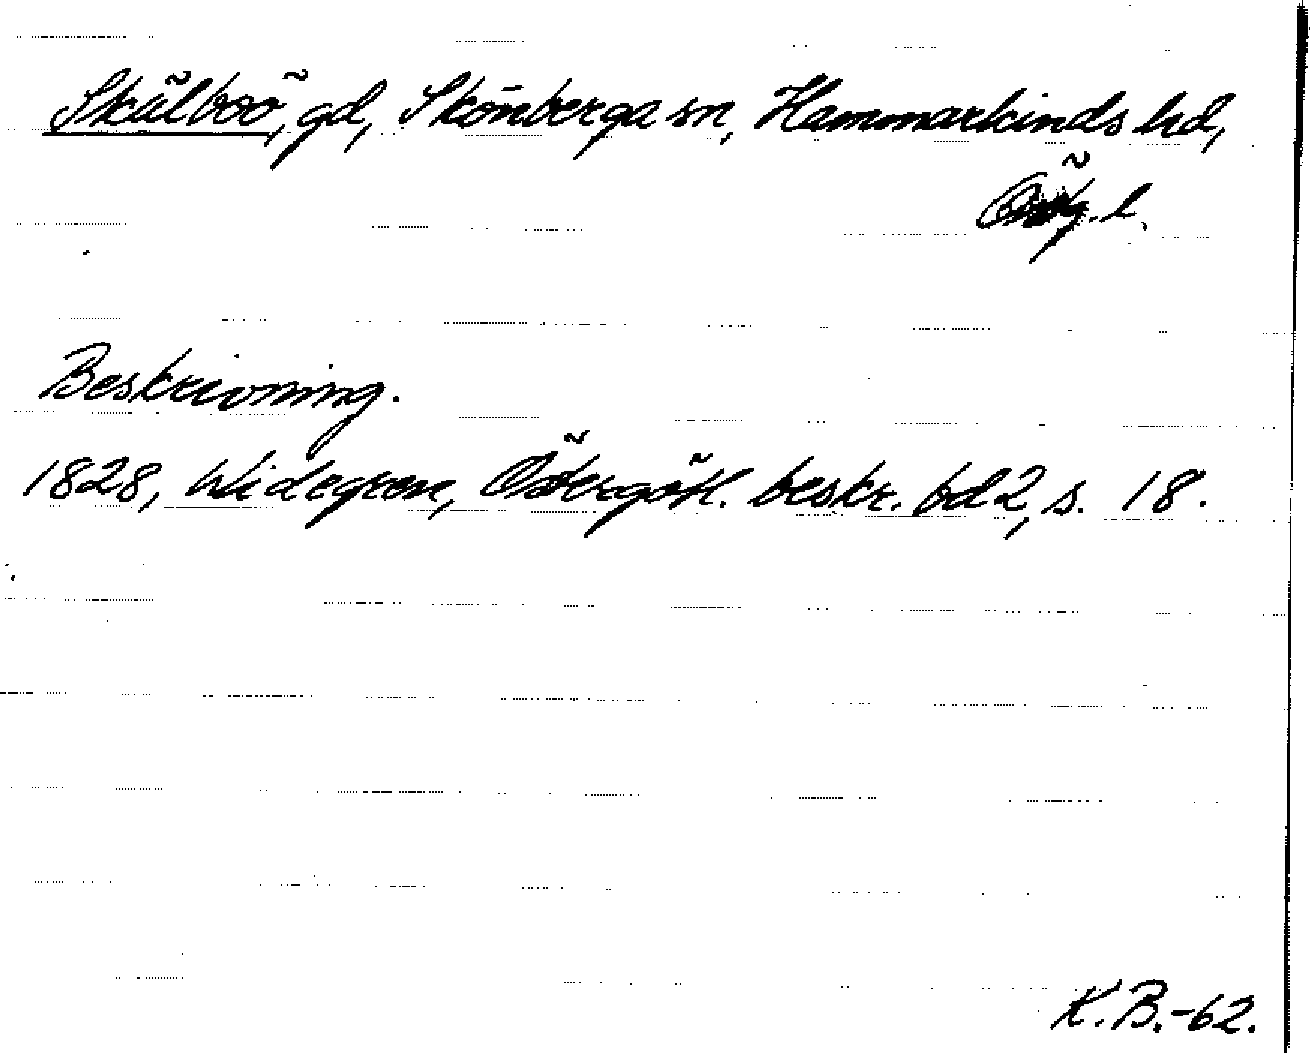 Skälboö, gd, Skönberga sn, Hammarkinds hd,
Ög. l.
Beskrivning.
1828, Widegren, Östergötl. beskr. bd 2, s. 18.
K.B.-62.